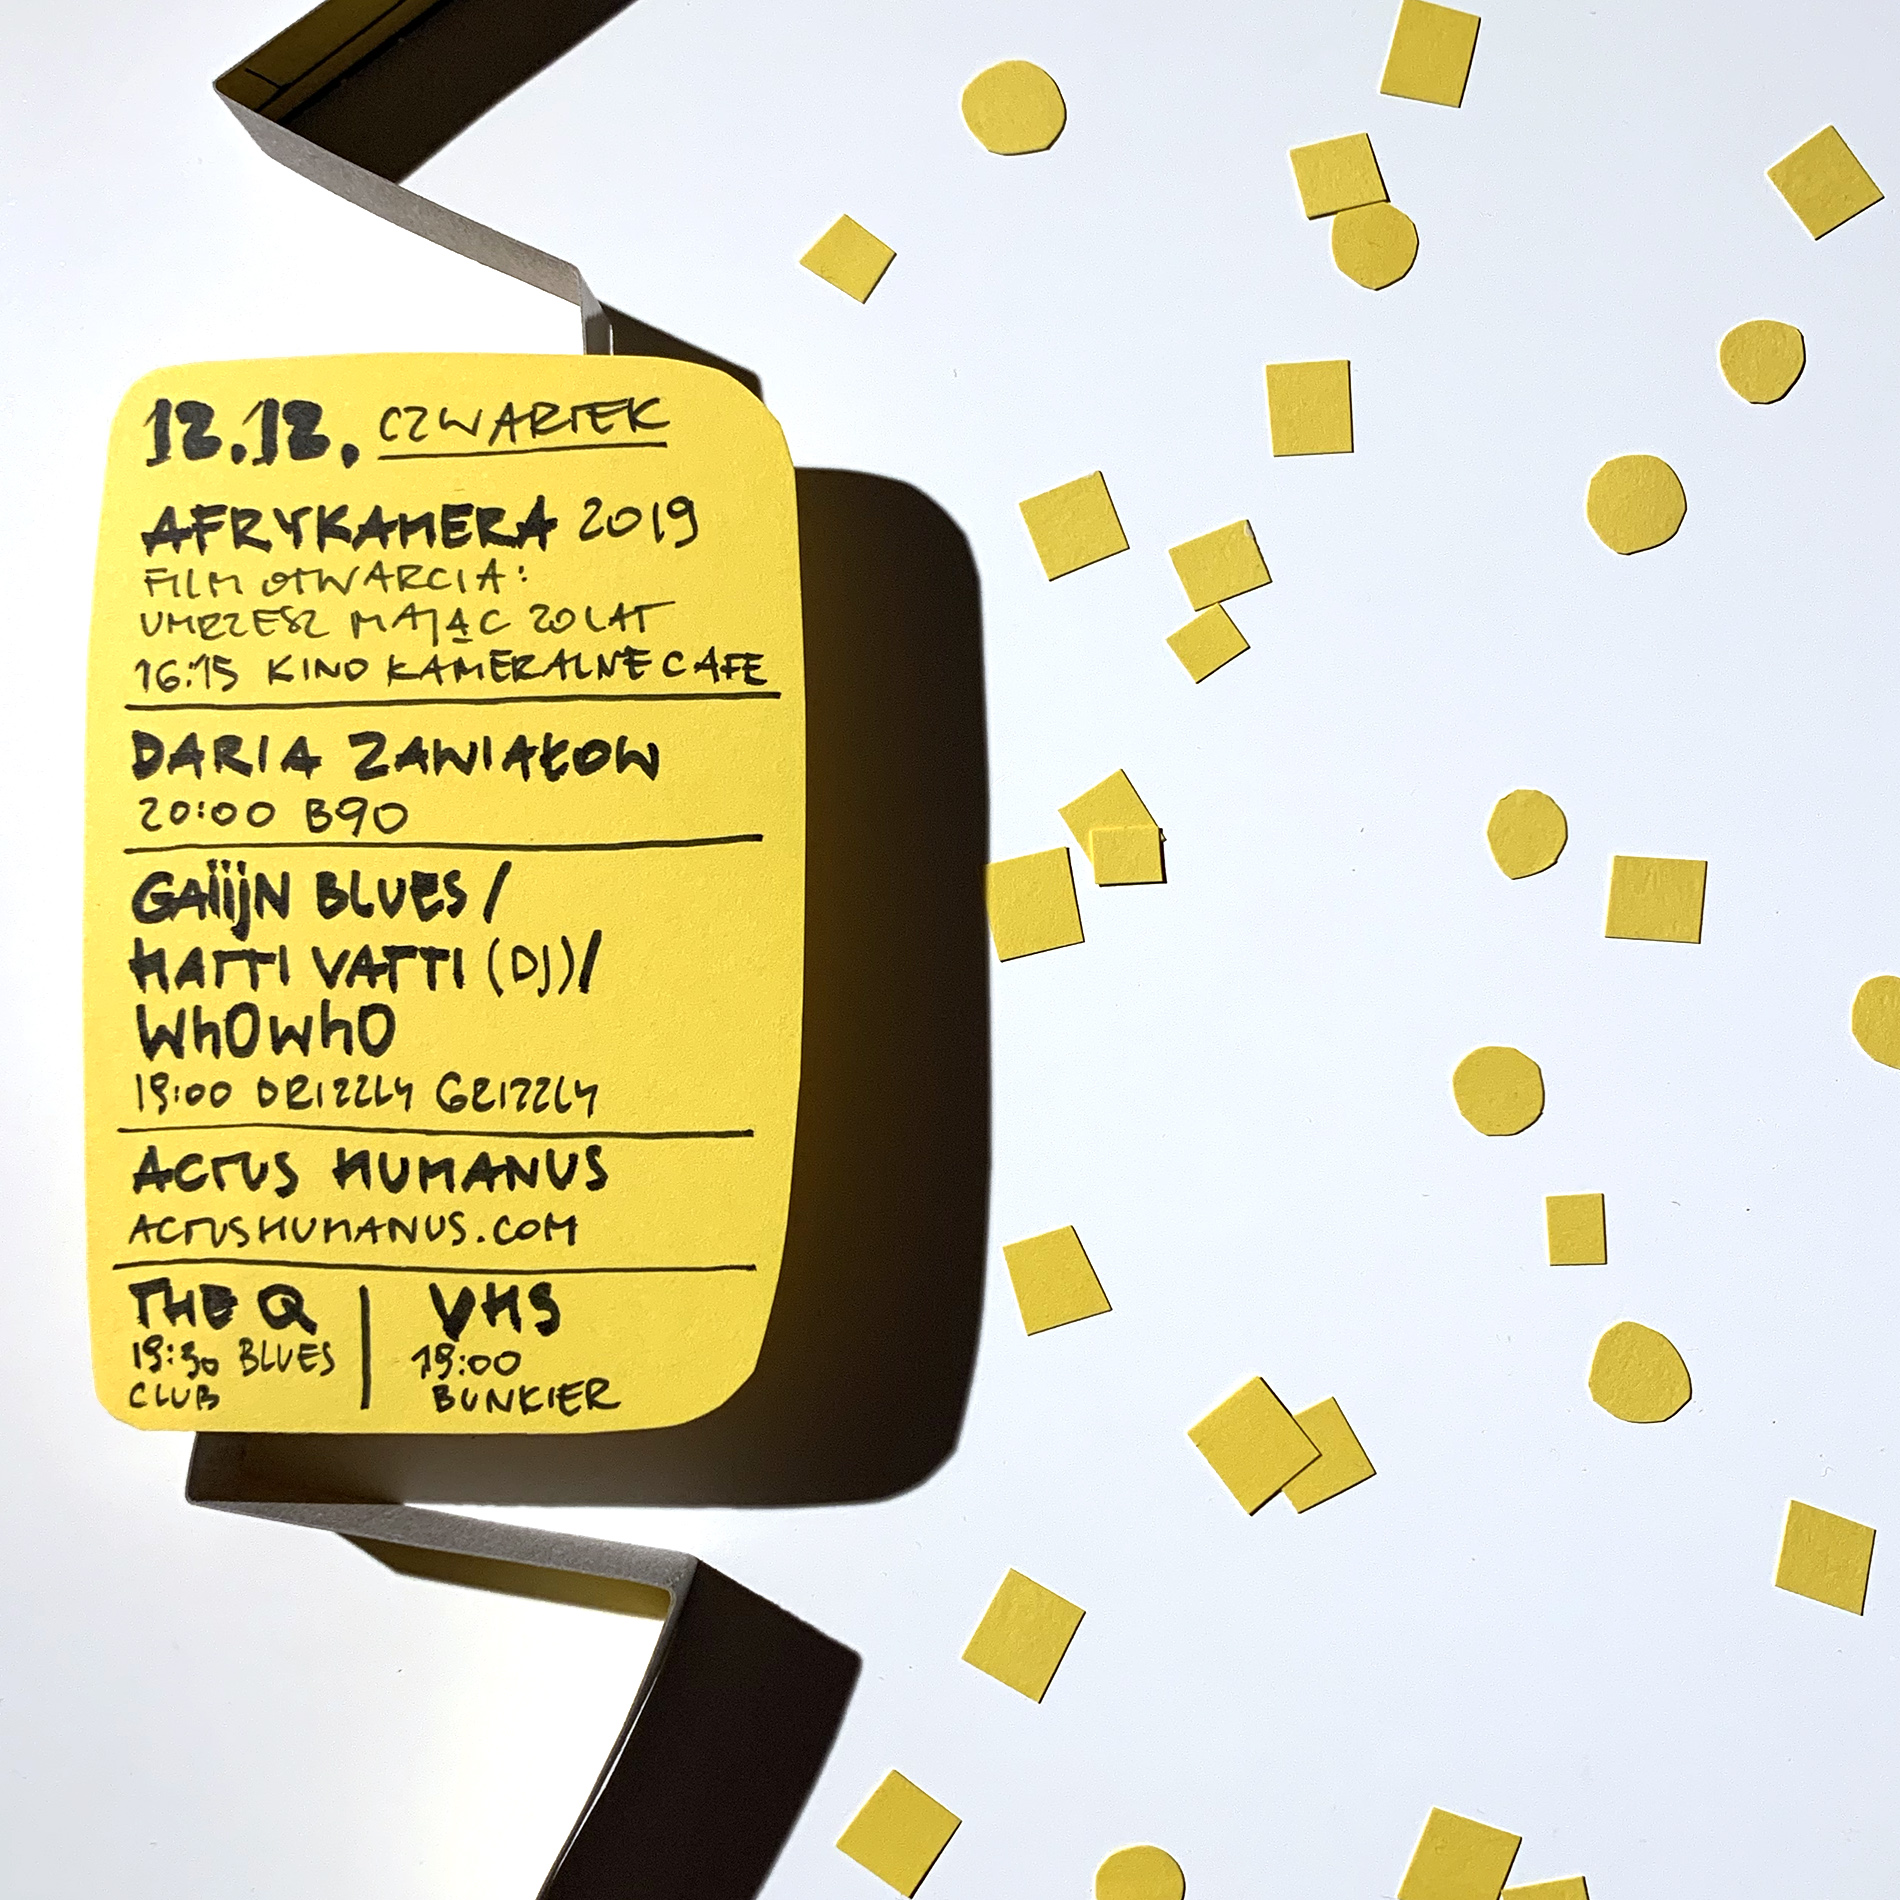 12.12. CZWARTEK
AFRYKAMERA 2019
FILM OTWARCIA:
UMRZESZ MAJĄC 20 LAT
16:15 KINO KAMERALNE CAFE
DARIA ZAWIAŁOW
20:00 B90
GAÏÏJN BLUES /
HATTI VATTI (DJ)/
WhOwhO
19:00 DRIZZLY GRIZZLY
ACTUS HUMANUS
ACTUSHUMANUS.COM
THE Q
19:30 BLUES
CLUB
VHS
19:00
BUNKIER